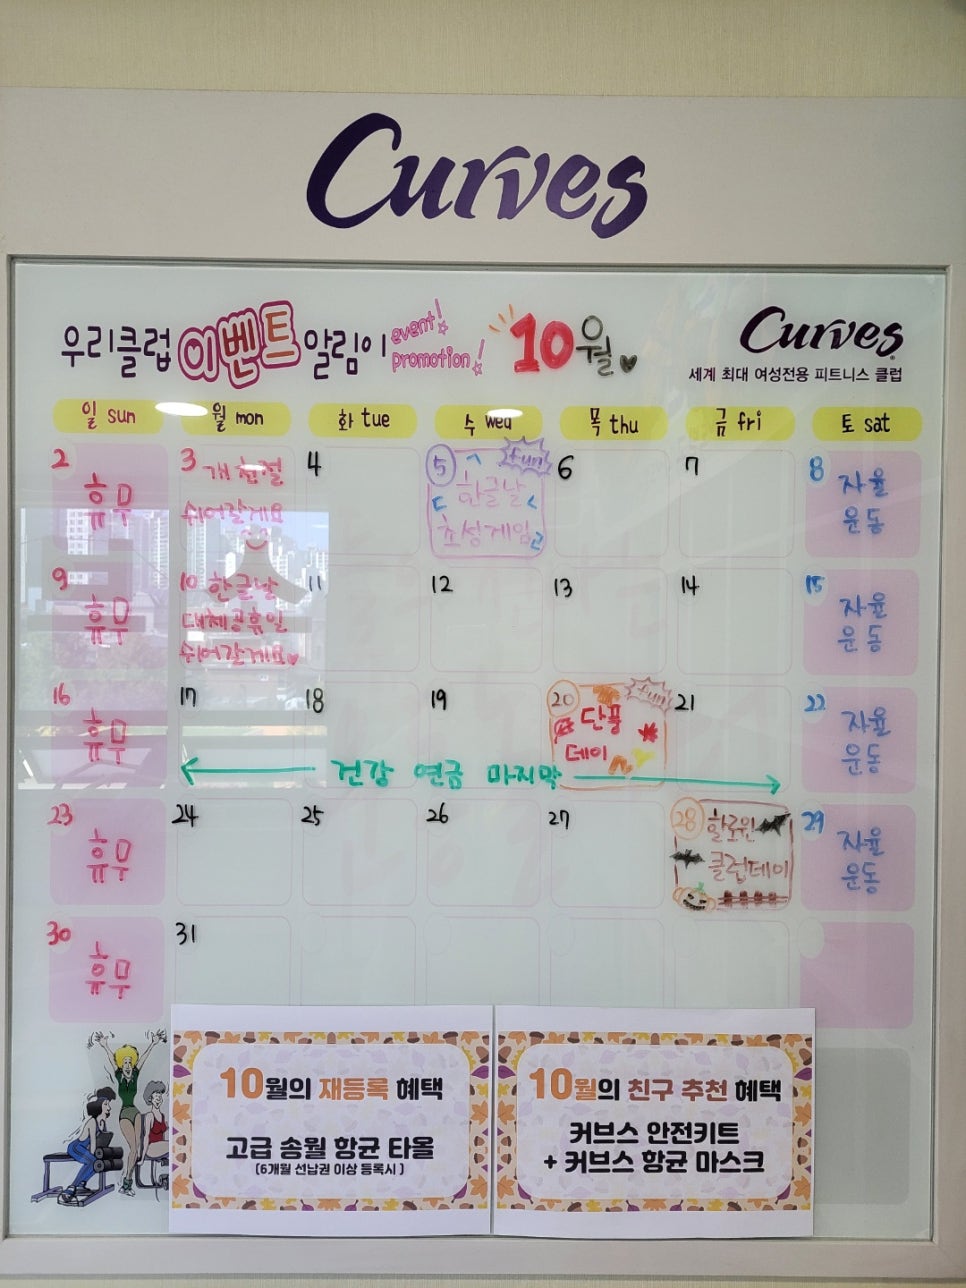 Curves
우리클럽 이벤트 알림이 event! promotion! 10월
Curves
세계 최대 여성전용 피트니스 클럽
일 sun 월 mon 화 tue 수 wed 목 thu 금 fri 토 sat
2 휴무
3 개천절
쉬어갈게요
4
5 fun
한글날
초성게임
ㄱ ㄴ ㄷ ㄹ
6
7
8 자율
운동
9 휴무
10 한글날
대체공휴일
쉬어갈게요
11
12
13
14
15 자율
운동
16 휴무
17
18
19
20 fun
단풍
데이
21
22 자율
운동
건강 연금 마지막
23 휴무
24
25
26
27
28 할로윈
클럽데이
29 자율
운동
30 휴무
31
10월의 재등록 혜택
고급 송월 항균 타올
(6개월 선납권 이상 등록시)
10월의 친구 추천 혜택
커브스 안전키트
+ 커브스 항균 마스크